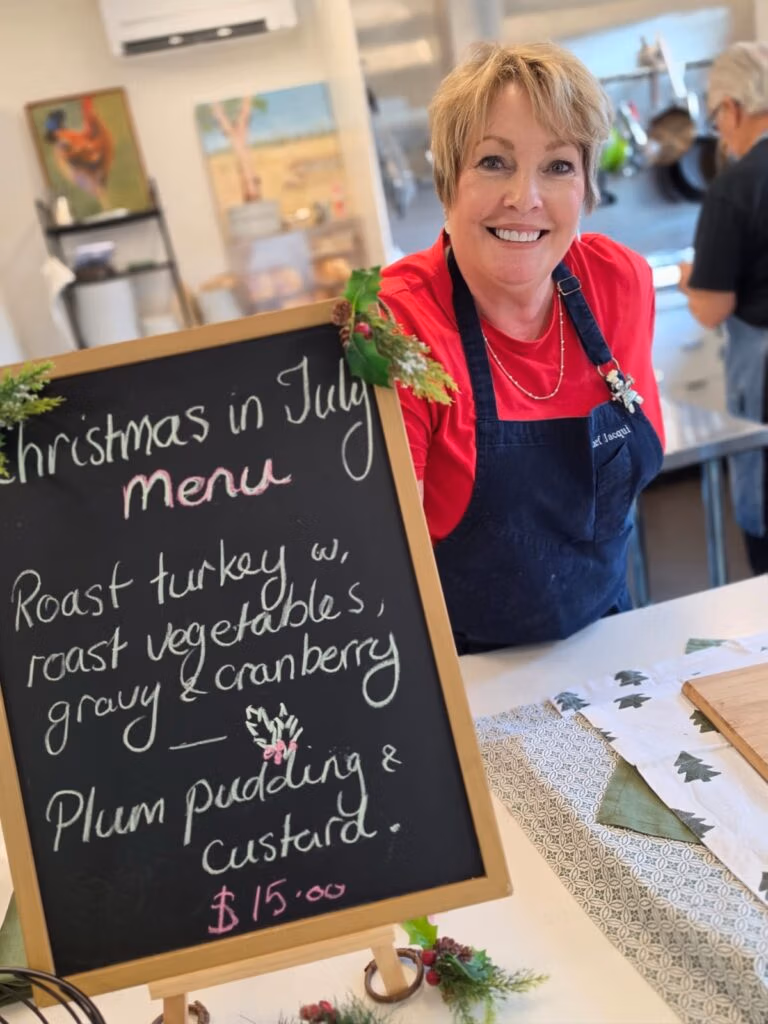 Christmas in July
menu
Roast turkey w,
roast vegetables,
gravy & cranberry
—
Plum pudding &
custard.
$15.00
Jacqui